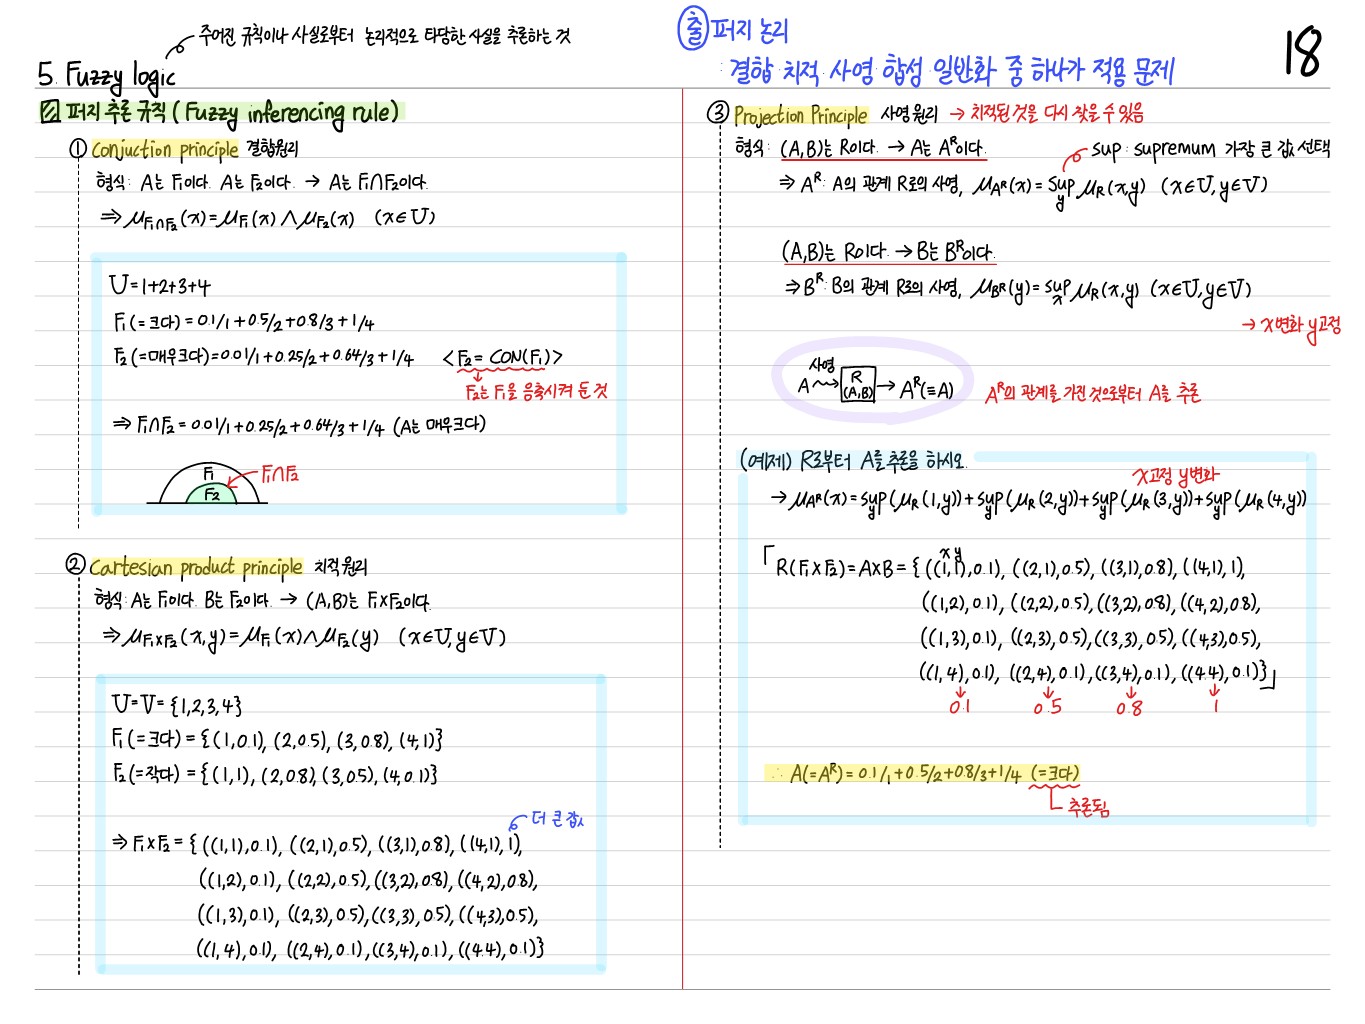 주어진 규칙이나 사실로부터 논리적으로 타당한 사실을 추론하는 것
5. Fuzzy logic
퍼지 추론 규칙 (Fuzzy inferencing rule)
① Conjuction principle 결합원리
형식: A는 F₁이다. A는 F₂이다. → A는 F₁∩F₂이다.
⇒ μF₁∩F₂(x) = μF₁(x) ∧ μF₂(x) (x∈U)
U = 1+2+3+4
F₁(=크다) = 0.1/1 + 0.5/2 + 0.8/3 + 1/4
F₂(=매우크다) = 0.01/1 + 0.25/2 + 0.64/3 + 1/4 <F₂ = CON(F₁)>
F₂는 F₁을 응축시켜 둔 것
⇒ F₁∩F₂ = 0.01/1 + 0.25/2 + 0.64/3 + 1/4 (A는 매우크다)
F₁ F₁∩F₂
F₂
② Cartesian product principle 치적원리
형식: A는 F₁이다. B는 F₂이다. → (A,B)는 F₁×F₂이다.
⇒ μF₁×F₂(x,y) = μF₁(x) ∧ μF₂(y) (x∈U, y∈V)
U = V = {1,2,3,4}
F₁(=크다) = {(1,0.1), (2,0.5), (3,0.8), (4,1)}
F₂(=작다) = {(1,1), (2,0.8), (3,0.5), (4,0.1)}
더 큰 값
⇒ F₁×F₂ = {((1,1),0.1), ((2,1),0.5), ((3,1),0.8), ((4,1),1),
((1,2),0.1), ((2,2),0.5), ((3,2),0.8), ((4,2),0.8),
((1,3),0.1), ((2,3),0.5), ((3,3),0.5), ((4,3),0.5),
((1,4),0.1), ((2,4),0.1), ((3,4),0.1), ((4.4),0.1)}
출 퍼지 논리
: 결합 치적 사영 합성 일반화 중 하나가 적용 문제
18
③ Projection Principle 사영원리 → 치적된 것을 다시 찾을 수 있음
형식: (A,B)는 R이다. → A는 Aᴿ이다. sup : supremum 가장 큰 값 선택
⇒ Aᴿ: A의 관계 R로의 사영, μAᴿ(x) = sup y μR(x,y) (x∈U, y∈V)
(A,B)는 R이다. → B는 Bᴿ이다.
⇒ Bᴿ: B의 관계 R로의 사영, μBᴿ(y) = sup x μR(x,y) (x∈U, y∈V)
→ x변화 y고정
사영
A → R (A,B) → Aᴿ(≡A) Aᴿ의 관계를 가진 것으로부터 A를 추론
(예제) R로부터 A를 추론을 하시오.
x고정 y변화
→ μAᴿ(x) = sup y(μR(1,y)) + sup y(μR(2,y)) + sup y(μR(3,y)) + sup y(μR(4,y))
x y
「R(F₁×F₂) = A×B = {((1,1),0.1), ((2,1),0.5), ((3,1),0.8), ((4,1),1),
((1,2),0.1), ((2,2),0.5), ((3,2),0.8), ((4,2),0.8),
((1,3),0.1), ((2,3),0.5), ((3,3),0.5), ((4,3),0.5),
((1,4),0.1), ((2,4),0.1), ((3,4),0.1), ((4.4),0.1)}」
0.1 0.5 0.8 1
∴ A(=Aᴿ) = 0.1/1 + 0.5/2 + 0.8/3 + 1/4 (=크다)
추론됨